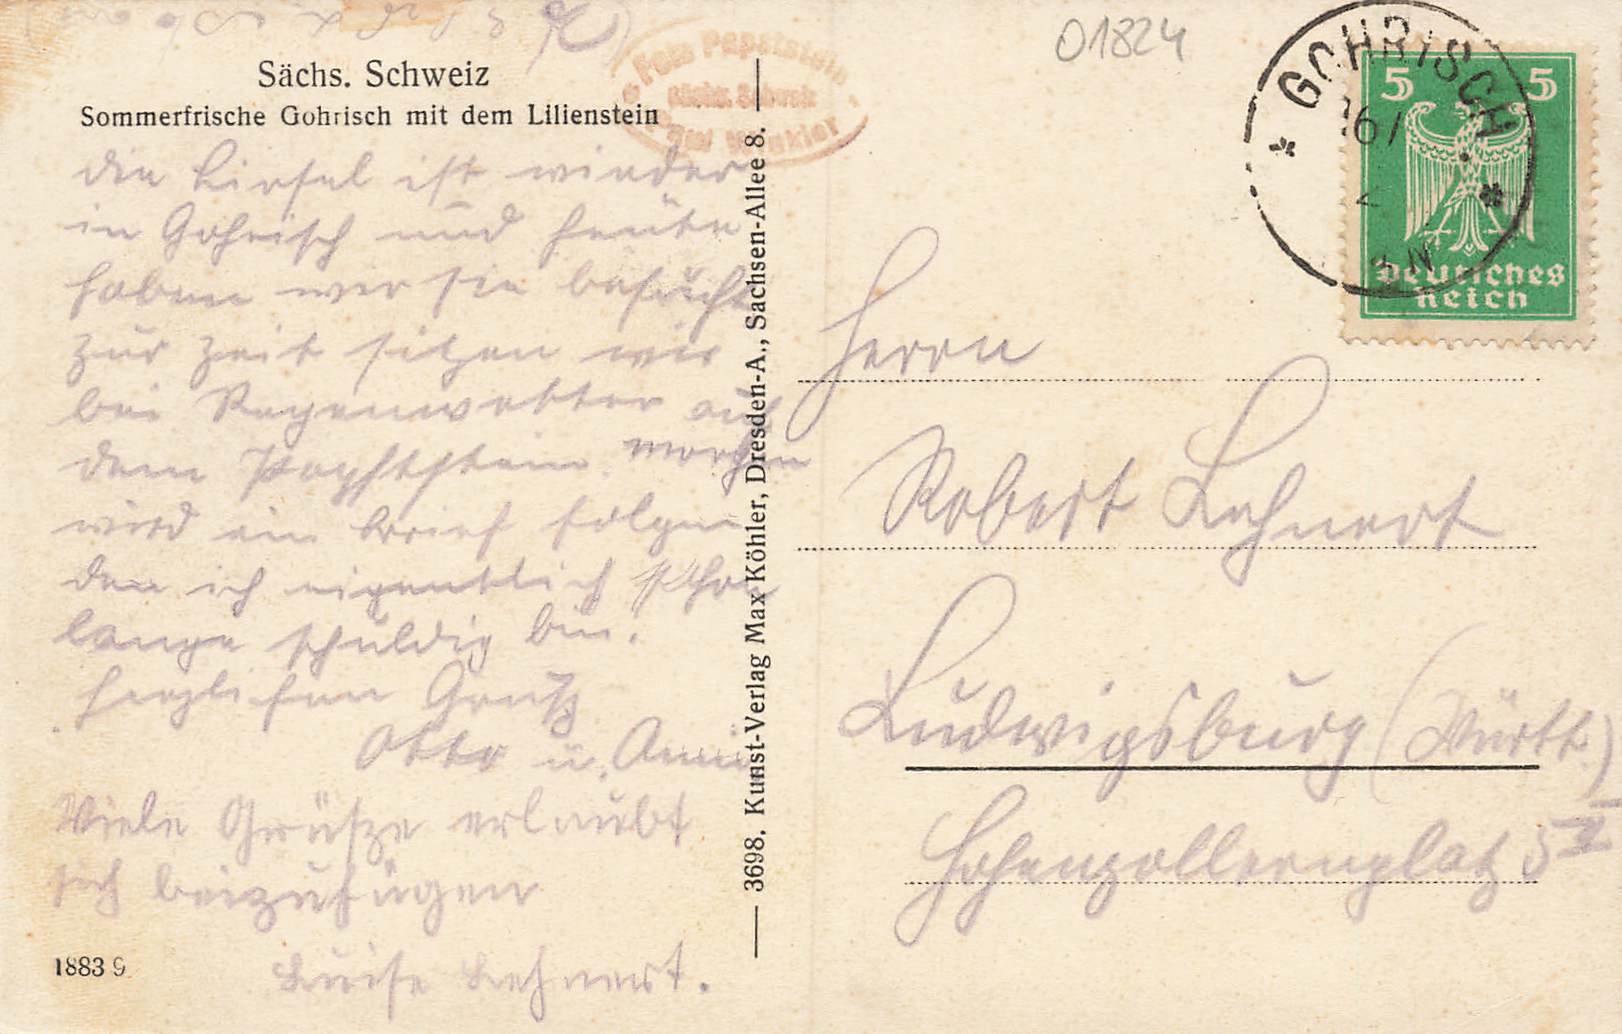 01824
Sächs. Schweiz
Sommerfrische Gohrisch mit dem Lilienstein
Foto Papststein
Sächs. Schweiz
Winkler
GOHRISCH
5 5
Deutsches
Reich
die Liesel ist wieder
in Gohrisch und heute
haben wir sie besucht
zur Zeit sitzen wir
bei Regenwetter auf
dem Papststein. morgen
wird ein Brief folgen
den ich eigentlich schon
lange schuldig bin.
Herzlichen Gruß
Otto u. Anni
Viele Grüße erlaubt
sich beizufügen
Luise Lehnert.
1883 9
3698. Kunst-Verlag Max Köhler, Dresden-A., Sachsen-Allee 8.
Herrn
Robert Lehnert
Ludwigsburg (Württ.)
Hohenzollernplatz 5 II